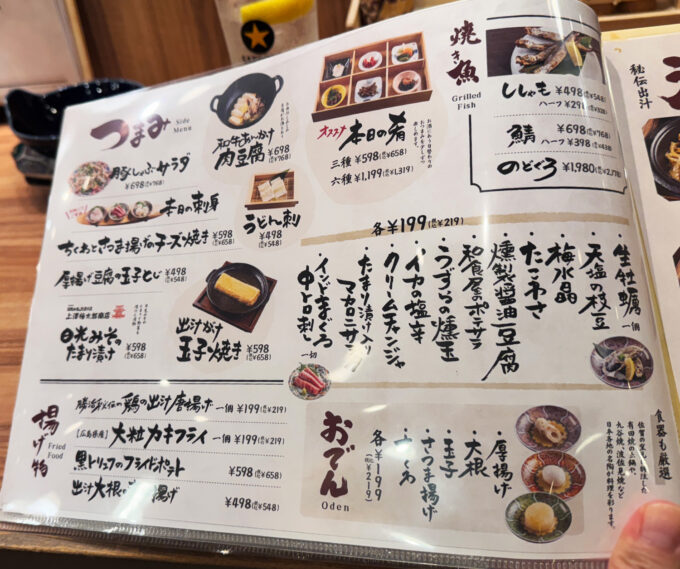 つまみ
Side Menu
豚しゃぶサラダ
¥698(税込¥768)
本日の刺身
ちくわとさつま揚げのチーズ焼き ¥598(税込¥658)
厚揚げ豆腐の玉子とじ ¥498(税込¥548)
上澤梅太郎商店
日光みそのたまり漬け ¥598(税込¥658)
和牛あんかけ
肉豆腐 ¥698(税込¥768)
うどん刺 ¥498(税込¥548)
出汁がけ
玉子焼き ¥598(税込¥658)
オススメ
本日の肴
三種 ¥598(税込¥658)
六種 ¥1,199(税込¥1,319)
焼き魚
Grilled Fish
ししゃも ¥498(税込¥548)
ハーフ ¥298(税込¥328)
鯖 ¥698(税込¥768)
ハーフ ¥398(税込¥438)
のどぐろ ¥1,980(税込¥2,178)
各¥199(税込¥219)
・生牡蠣 一個
・天塩の枝豆
・梅水晶
・たこわさ
・燻製醤油豆腐
・和食屋のポテサラ
・うずらの燻玉
・イカの塩辛
・クリームチャンジャ
・たまり漬け入りマカロニサラダ
・インドまぐろ中トロ刺し 一切
揚げ物
Fried Food
勝浦秘伝の鶏の出汁唐揚げ 一個 ¥199(税込¥219)
【広島県産】大粒カキフライ 一個 ¥199(税込¥219)
黒トリュフのフライドポテト ¥598(税込¥658)
出汁大根の
揚げ ¥498(税込¥548)
おでん
Oden
各¥199
(税込¥219)
・厚揚げ
・大根
・さつま揚げ
・玉子
・ちくわ
食器も厳選
有田焼の上絵や、
九谷焼、波佐見焼など
日本各地の名陶が料理を彩ります。
秘伝出汁